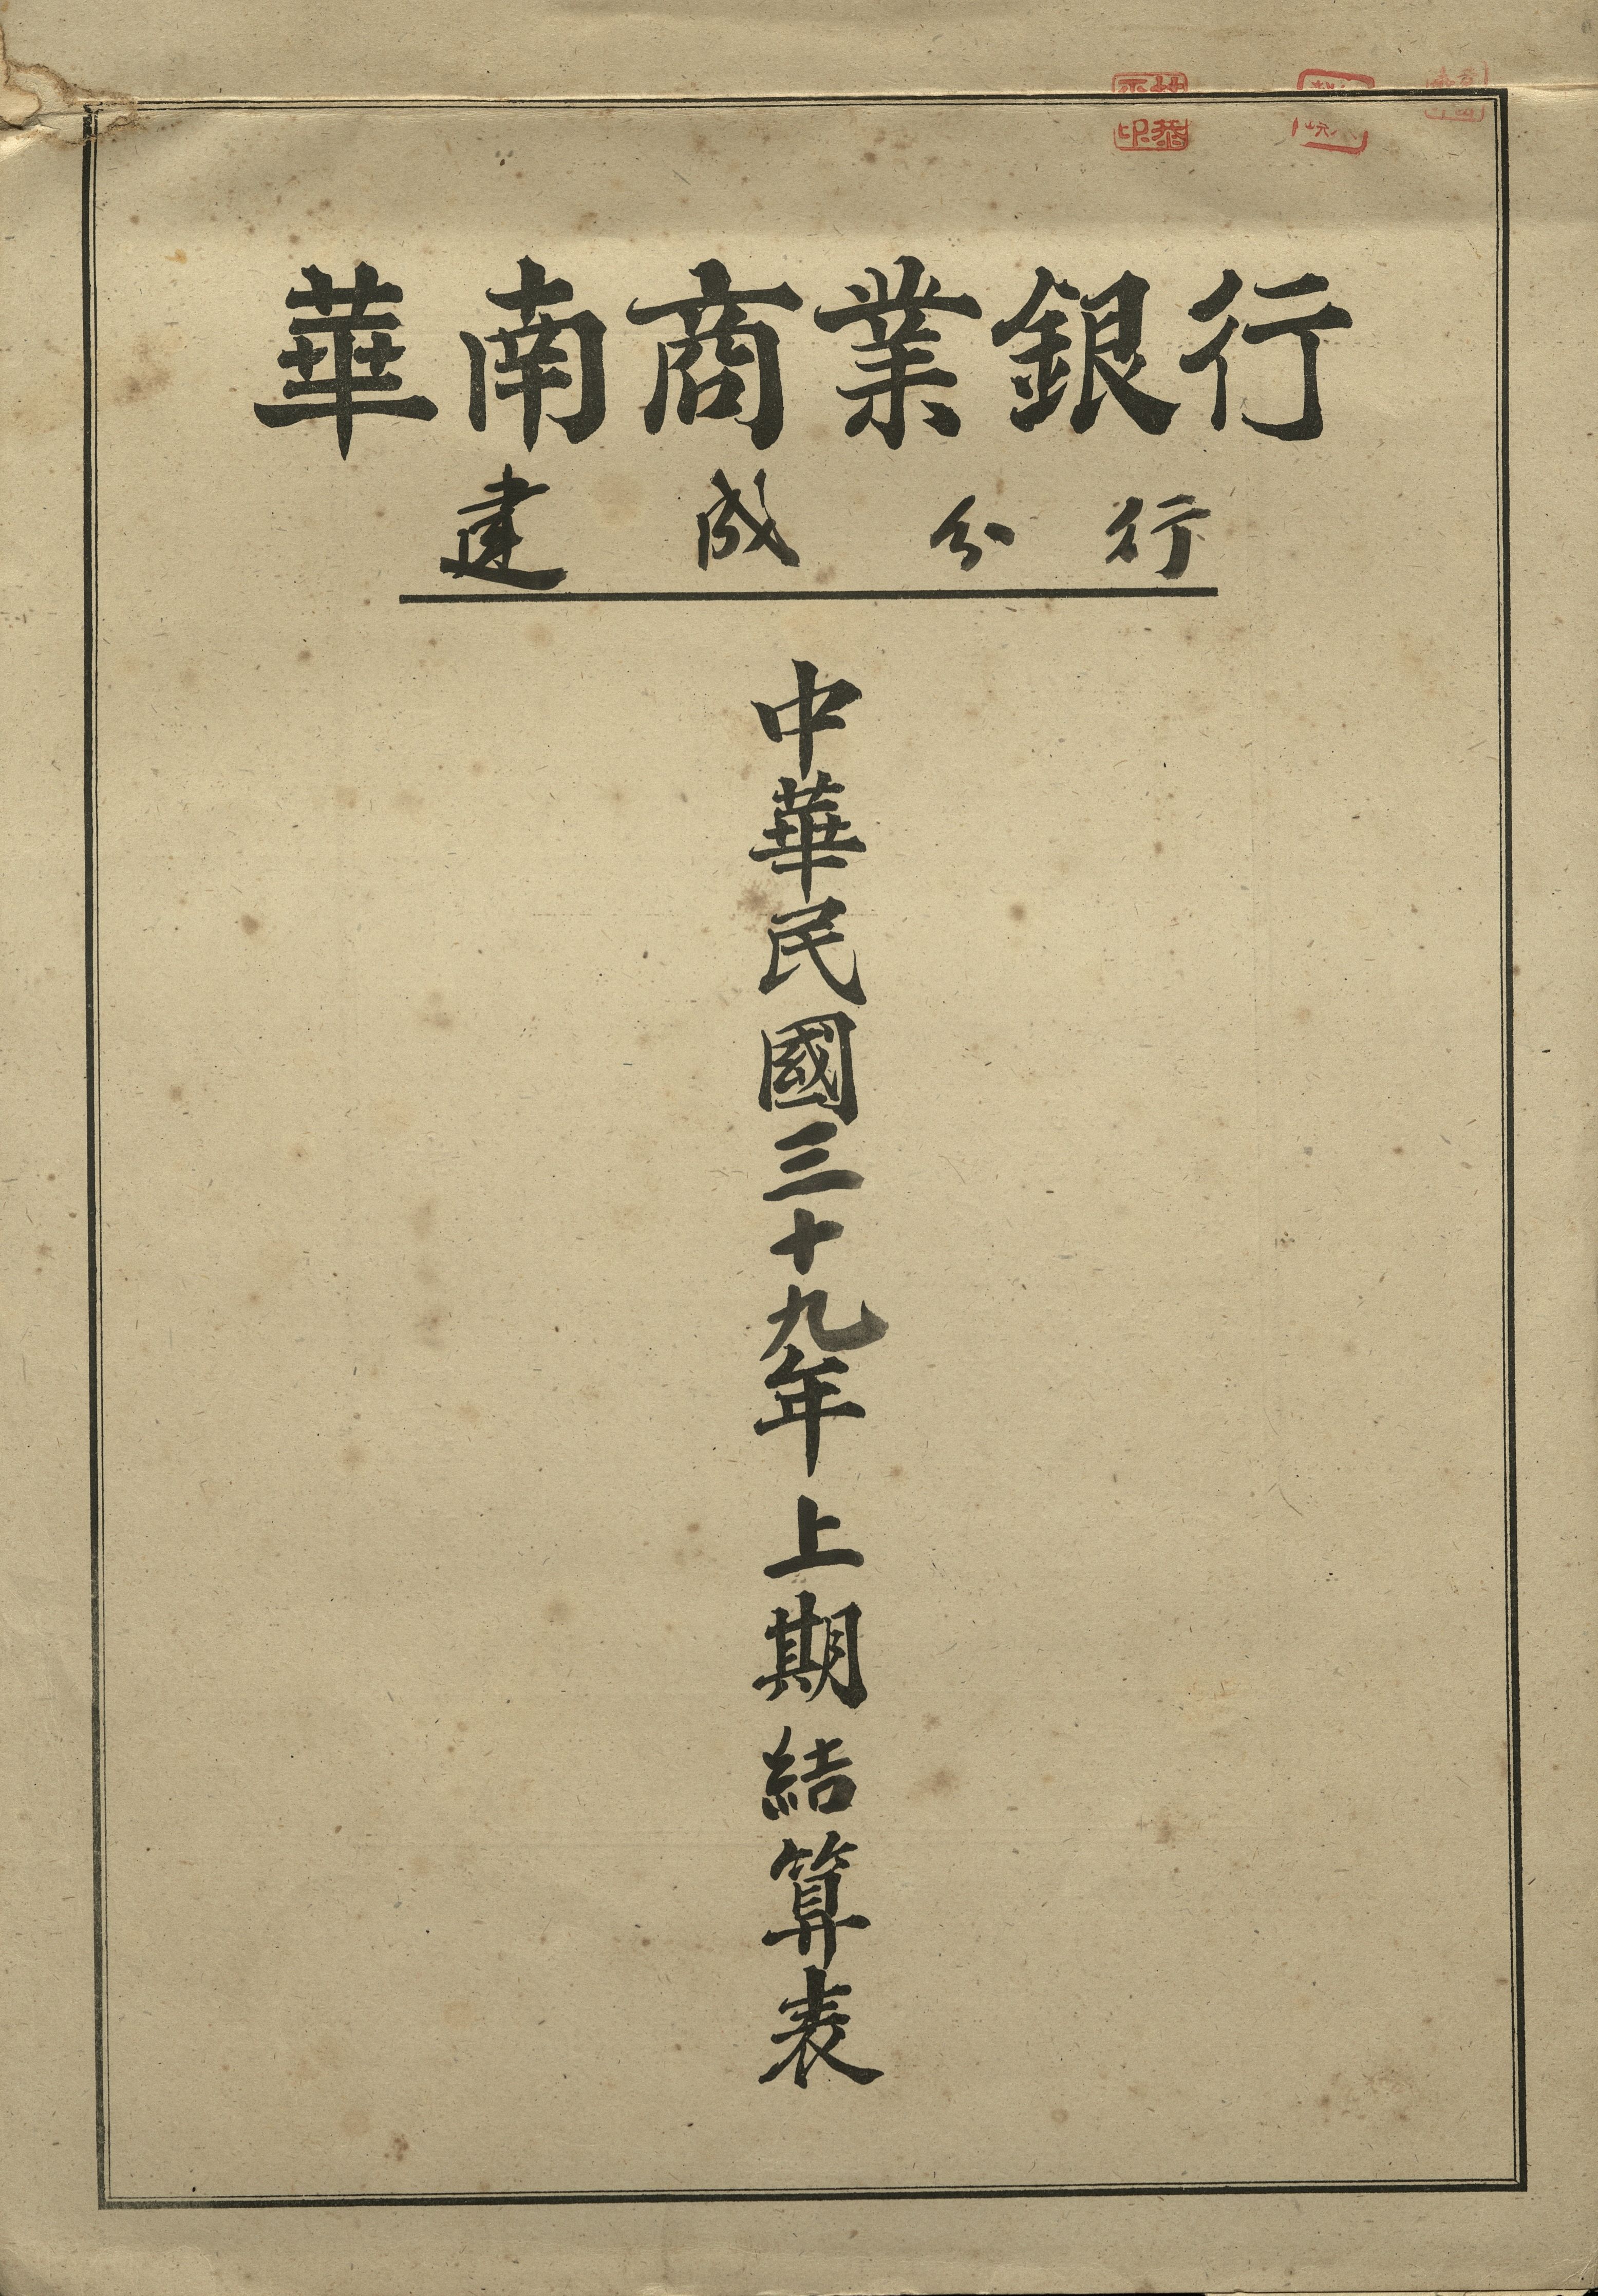 華南商業銀行
建成分行
中華民國三十九年上期結算表